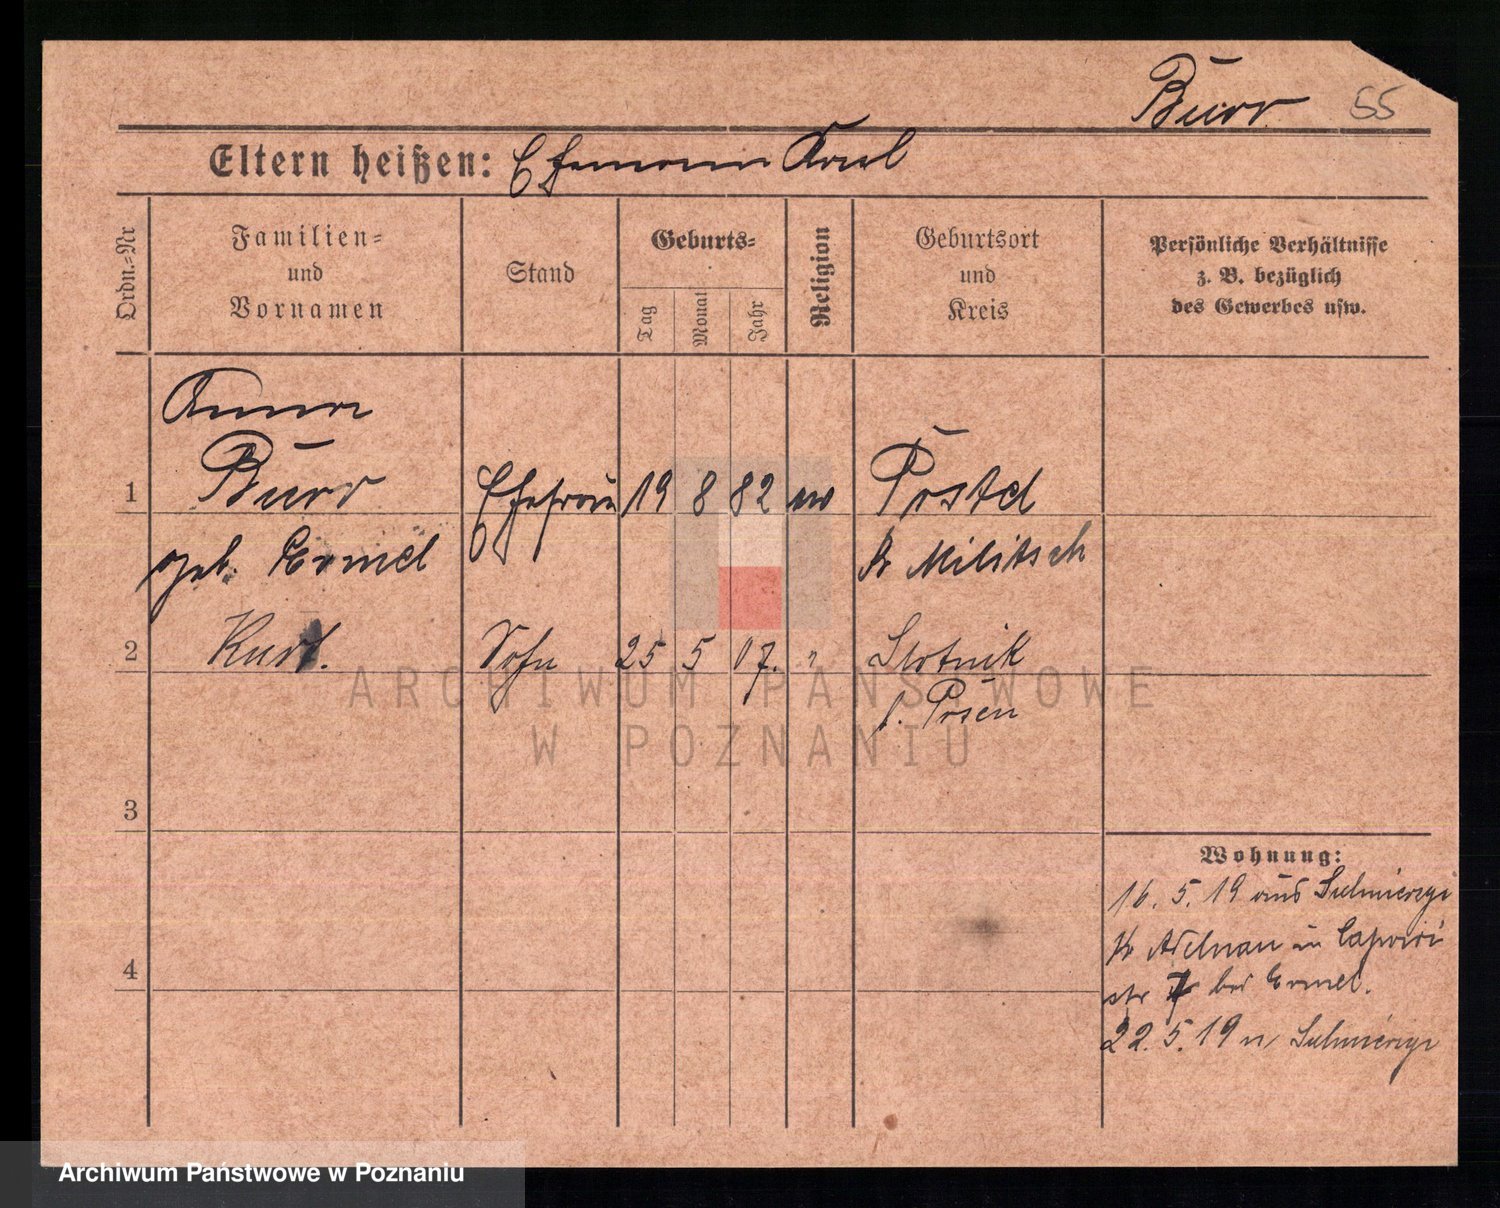 Burr 55
Eltern heißen: Ehemann Karl
Ordn.-Nr
Familien-
und
Vornamen
Stand
Geburts-
Tag
Monat
Jahr
Religion
Geburtsort
und
Kreis
Persönliche Verhältnisse
z. B. bezüglich
des Gewerbes usw.
Anna
1 Burr Ehefrau 19 8 82 ev
geb. Ermel Kr Militsch
2 Kurt. Sohn 25 5 07. " Slotnik
b. Posen
ARCHIWUM PAŃSTWOWE
W POZNANIU
3
Wohnung:
16. 5. 19 aus Sulmierzyc
Kr Adelnau in
4
str 7 bei Ermel.
22. 5. 19 n Sulmierzyc
Archiwum Państwowe w Poznaniu